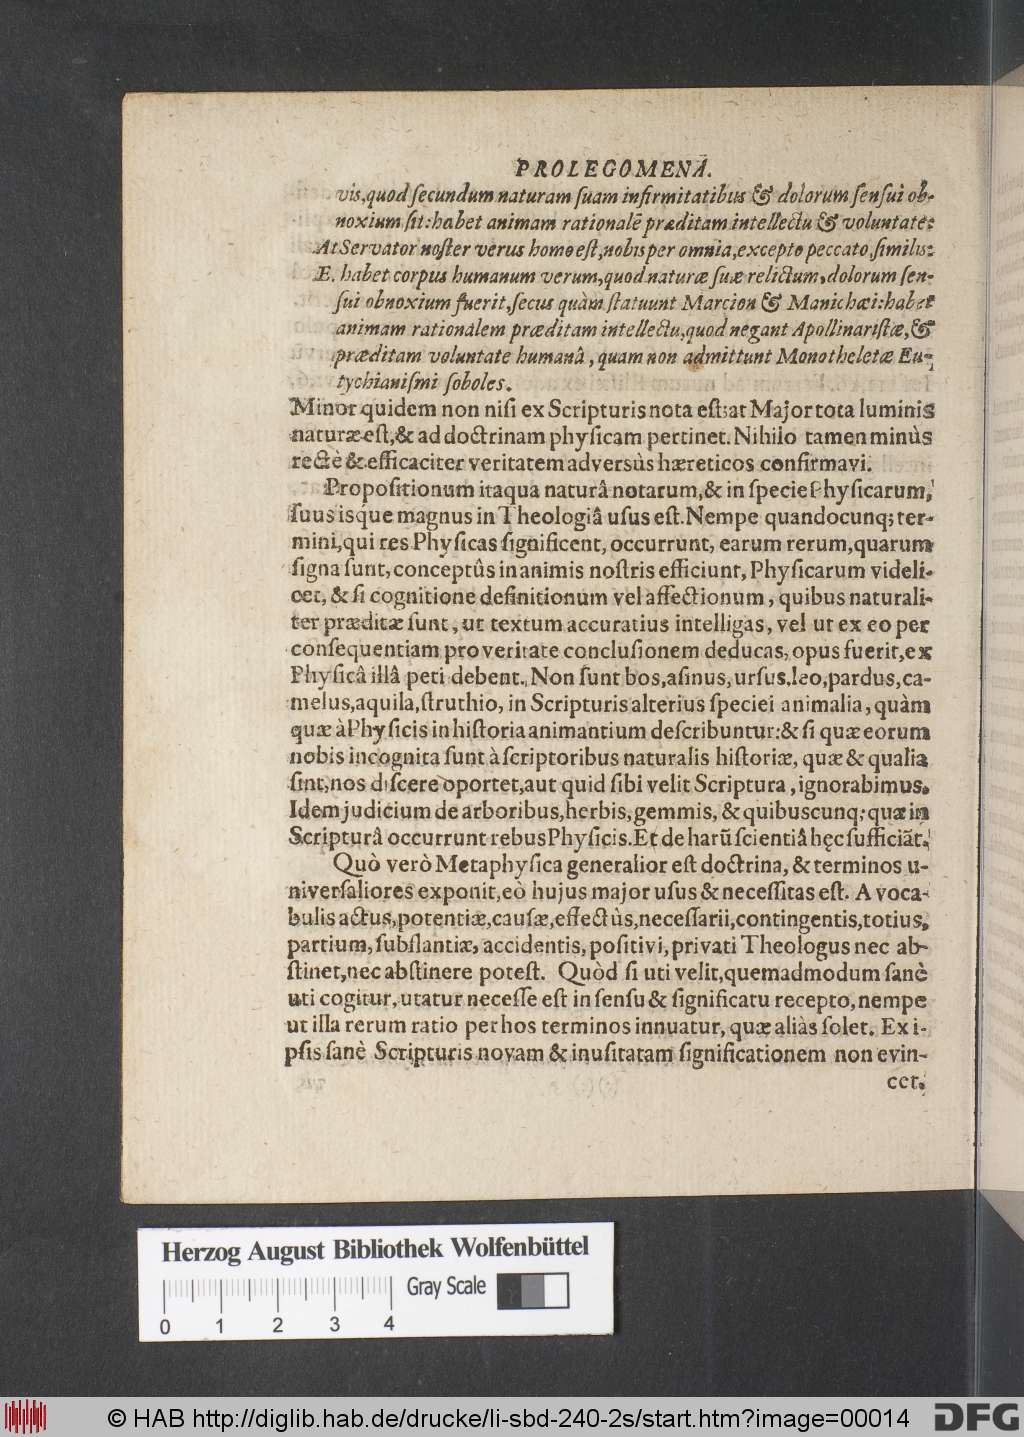 PROLEGOMENA.
vis, quod ſecundum naturam ſuam infirmitatibus & dolorum ſenſui ob-
noxium ſit: habet animam rationalē præditam intellectu & voluntate:
At Servator noſter verus homo eſt, nobis per omnia, excepto peccato, ſimilis:
E. habet corpus humanum verum, quod naturæ ſuæ relictum, dolorum ſen-
ſui obnoxium fuerit, ſecus quàm ſtatuunt Marcion & Manichæi: habet
animam rationalem præditam intellectu, quod negant Apollinariſtæ, &
præditam voluntate humanâ, quam non admittunt Monotheletæ Eu-
tychianiſmi ſoboles.
Minor quidem non niſi ex Scripturis nota eſt: at Major tota luminis
naturæ eſt, & ad doctrinam phyſicam pertinet. Nihilo tamen minùs
rectè & efficaciter veritatem adversùs hæreticos confirmavi.
Propoſitionum itaqua naturâ notarum, & in ſpecie Phyſicarum,
ſuus isque magnus in Theologiâ uſus eſt. Nempe quandocunq; ter-
mini, qui res Phyſicas ſignificent, occurrunt, earum rerum, quarum
ſigna ſunt, conceptûs in animis noſtris efficiunt, Phyſicarum videli-
cet, & ſi cognitione definitionum vel affectionum, quibus naturali-
ter præditæ ſunt, ut textum accuratius intelligas, vel ut ex eo per
conſequentiam pro veritate concluſionem deducas, opus fuerit, ex
Phyſicâ illâ peti debent. Non ſunt bos, aſinus, urſus, leo, pardus, ca-
melus, aquila, ſtruthio, in Scripturis alterius ſpeciei animalia, quàm
quæ à Phyſicis in hiſtoria animantium deſcribuntur: & ſi quæ eorum
nobis incognita ſunt à ſcriptoribus naturalis hiſtoriæ, quæ & qualia
ſint, nos diſcere oportet, aut quid ſibi velit Scriptura, ignorabimus.
Idem judicium de arboribus, herbis, gemmis, & quibuscunq; quæ in
Scripturâ occurrunt rebus Phyſicis. Et de harū ſcientiâ hęc ſufficiāt.
Quò verò Metaphyſica generalior eſt doctrina, & terminos u-
niverſaliores exponit, eò hujus major uſus & neceſſitas eſt. A voca-
bulis actus, potentiæ, cauſæ, effectùs, neceſſarii, contingentis, totius,
partium, ſubſtantiæ, accidentis, poſitivi, privati Theologus nec ab-
ſtinet, nec abſtinere poteſt. Quòd ſi uti velit, quemadmodum ſanè
uti cogitur, utatur neceſſe eſt in ſenſu & ſignificatu recepto, nempe
ut illa rerum ratio per hos terminos innuatur, quæ aliàs ſolet. Ex i-
pſis ſanè Scripturis novam & inuſitatam ſignificationem non evin-
cet.
Herzog August Bibliothek Wolfenbüttel
Gray Scale
0 1 2 3 4
© HAB http://diglib.hab.de/drucke/li-sbd-240-2s/start.htm?image=00014
DFG